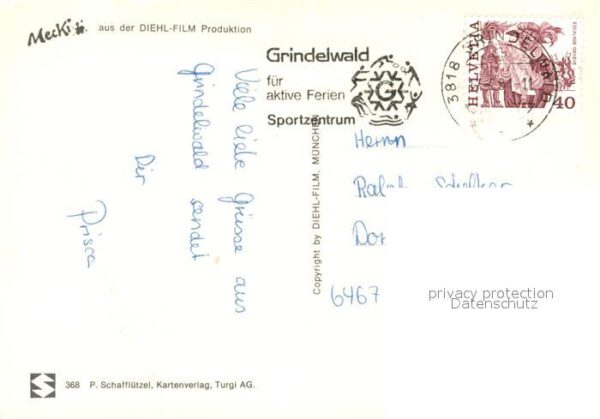 Mecki
aus der DIEHL-FILM Produktion
Grindelwald
für
aktive Ferien
Sportzentrum
G
3818 GRINDELWALD
HELVETIA
ESCALADE GENÈVE
40
Viele liebe Grüsse aus
Grindelwald sendet
Dir
Prisca
Copyright by DIEHL-FILM, MÜNCHEN
Herrn
Dor
6467
privacy protection
Datenschutz
S
368 P. Schafflützel, Kartenverlag, Turgi AG.